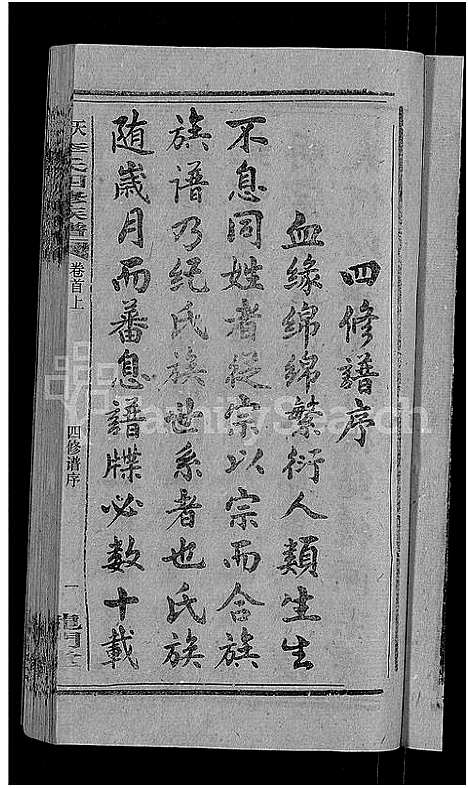 四修譜序
血緣綿綿繁衍人類生生
不息同姓者從宗以宗而合族
族谱乃纪氏族世系者也氏族
随歲月而蕃息譜牒必数十載
卷首上
四修谱序
一
FamilySearch